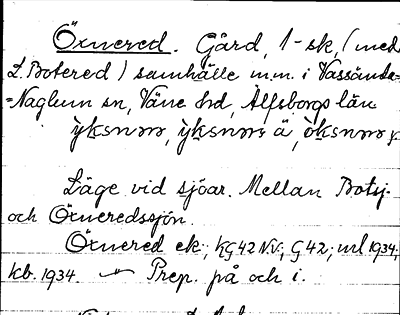 Öxnered. Gård, 1-sk, (med
L. Botered) samhälle m.m. i Vassända-
=Naglum sn, Väne hd, Älfsborgs län
Läge vid sjöar. Mellan Boty.
och Öxneredssjön.
Öxnered ek; KG 42 NV; G 42; url 1934;
kb. 1934. Prep. på och i.